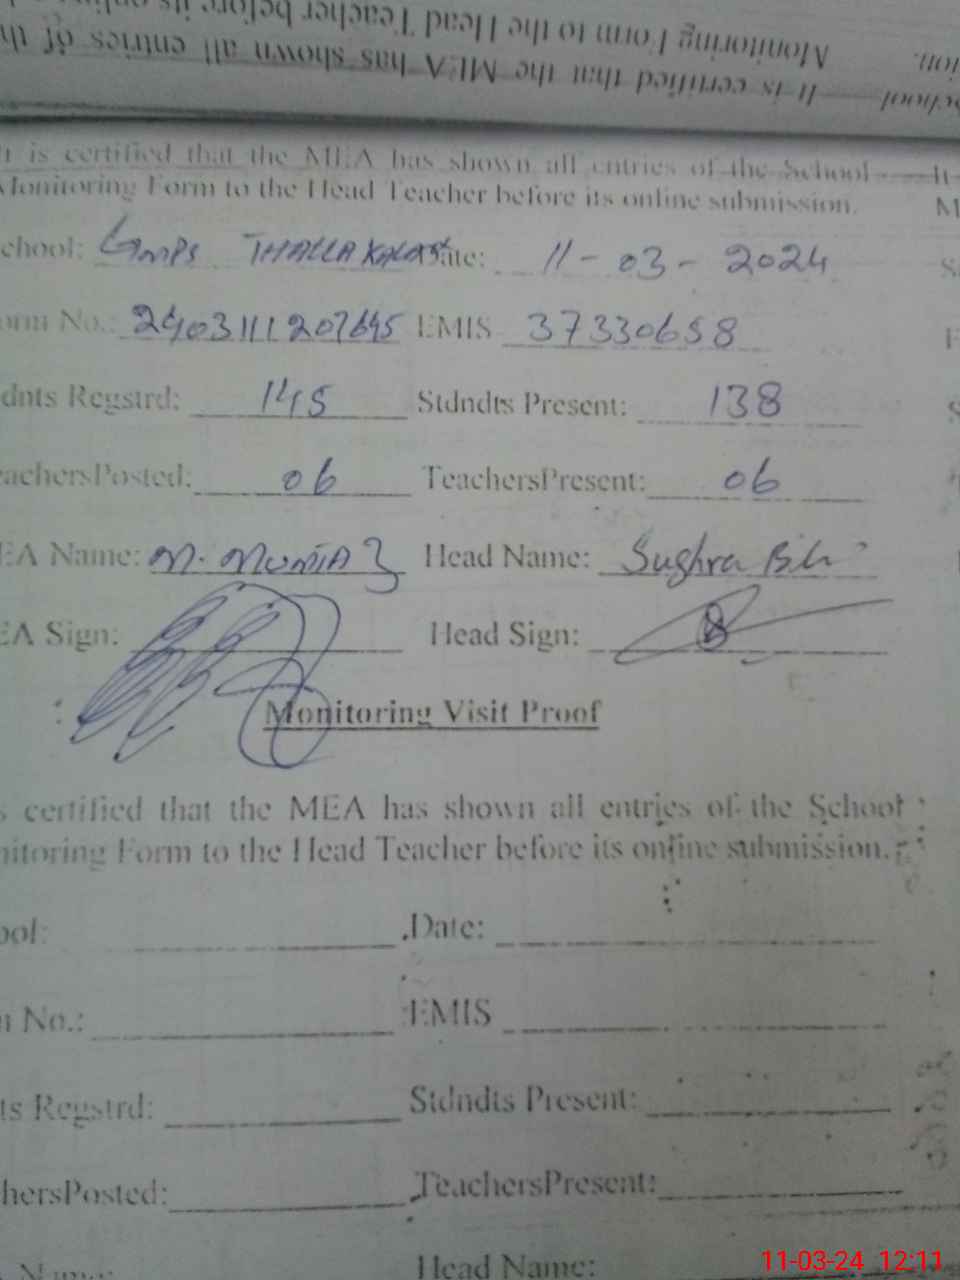 Monitoring Form to the Head Teacher before its
It is certified that the MEA has shown all entries of th
It is certified that the MEA has shown all entries of the School
Monitoring Form to the Head Teacher before its online submission.
chool: GMPS THALLA KALAS ate: 11-03-2024
orm No.: 2403111207645 EMIS 37330658
dnts Regstrd: 145 Stdndts Present: 138
eachersPosted: 06 TeachersPresent: 06
EA Name: M. MUMTAZ Head Name: Sughra Bibi
EA Sign: Head Sign:
Monitoring Visit Proof
s certified that the MEA has shown all entries of the School
nitoring Form to the Head Teacher before its online submission.
ool: Date:
n No.: EMIS
ts Regstrd: Stdndts Present:
hersPosted: TeachersPresent:
Name: Head Name:
11-03-24 12:11